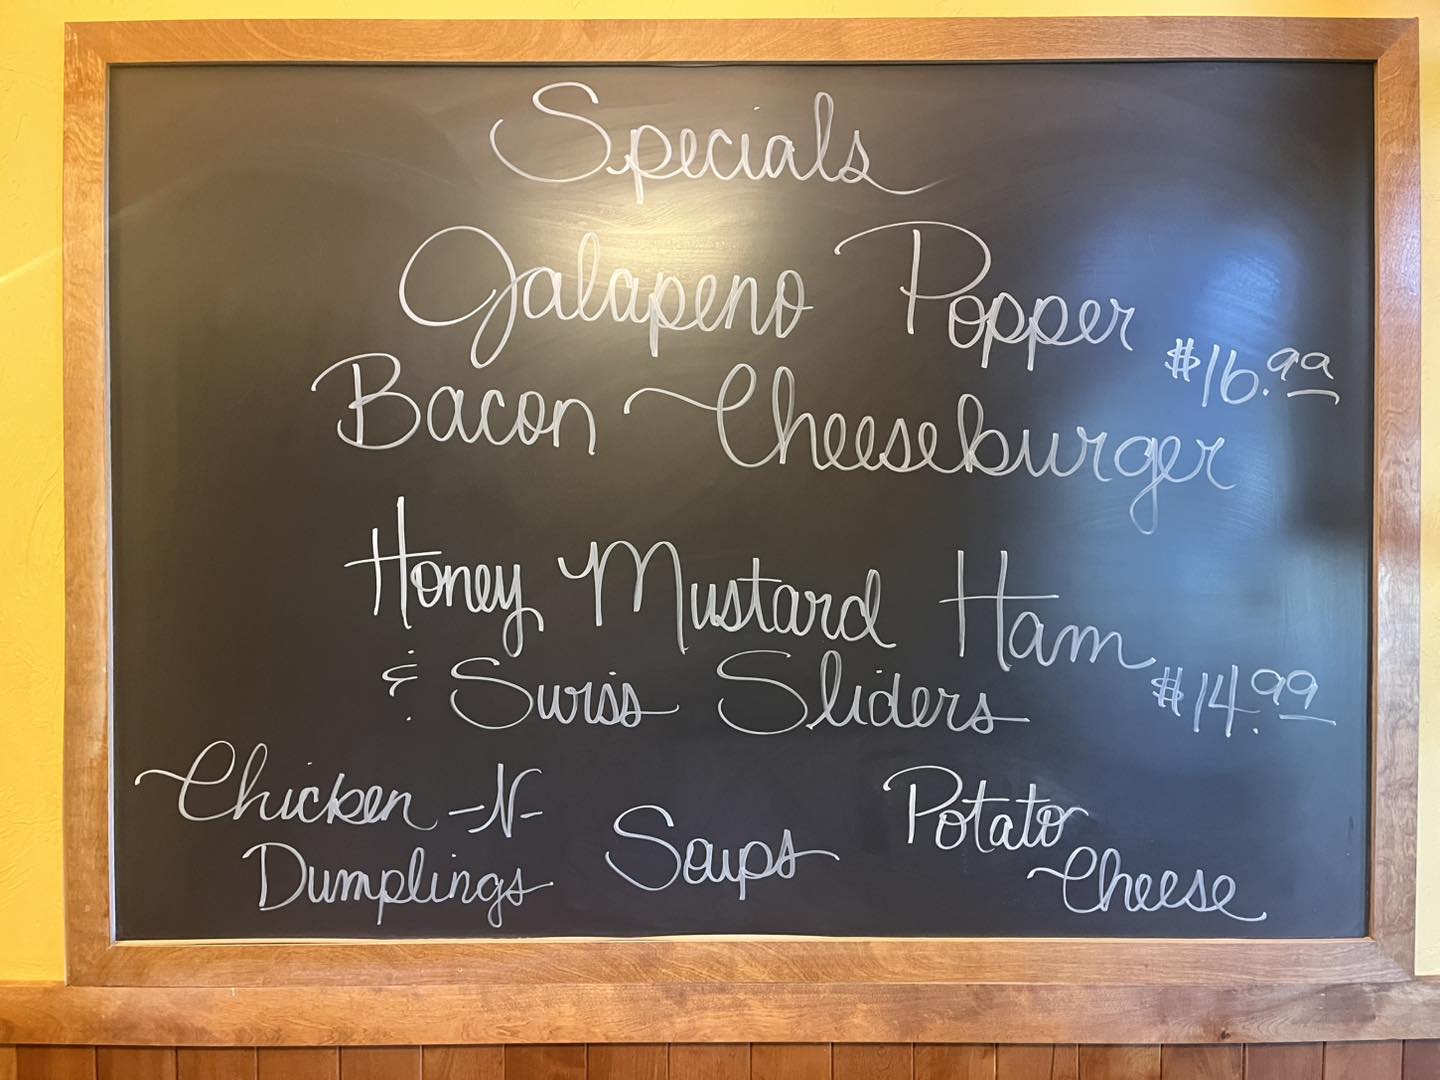 Specials
Jalapeno Popper
Bacon Cheeseburger $16.99
Honey Mustard Ham
& Swiss Sliders $14.99
Chicken -N-
Dumplings
Soups
Potato
Cheese